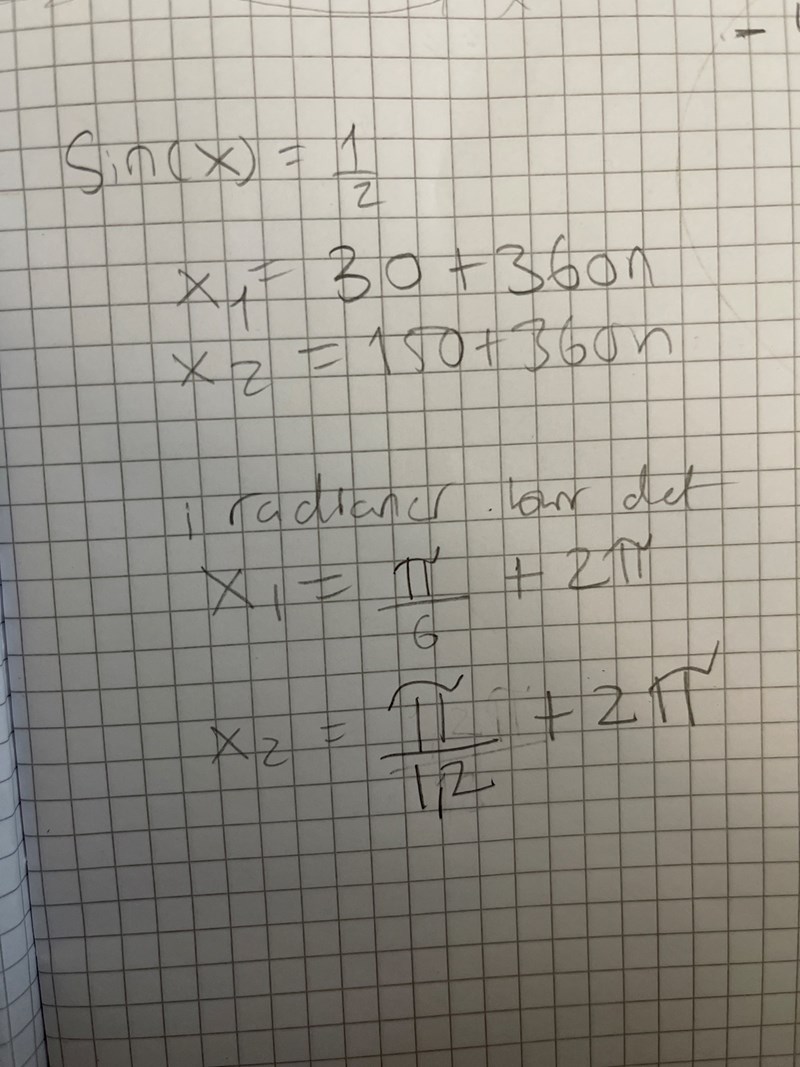 Sin(x) = 1/2
x₁ = 30 + 360n
x₂ = 150 + 360n
i radianer det
x₁ = π/6 + 2π
x₂ = π/1,2 + 2π